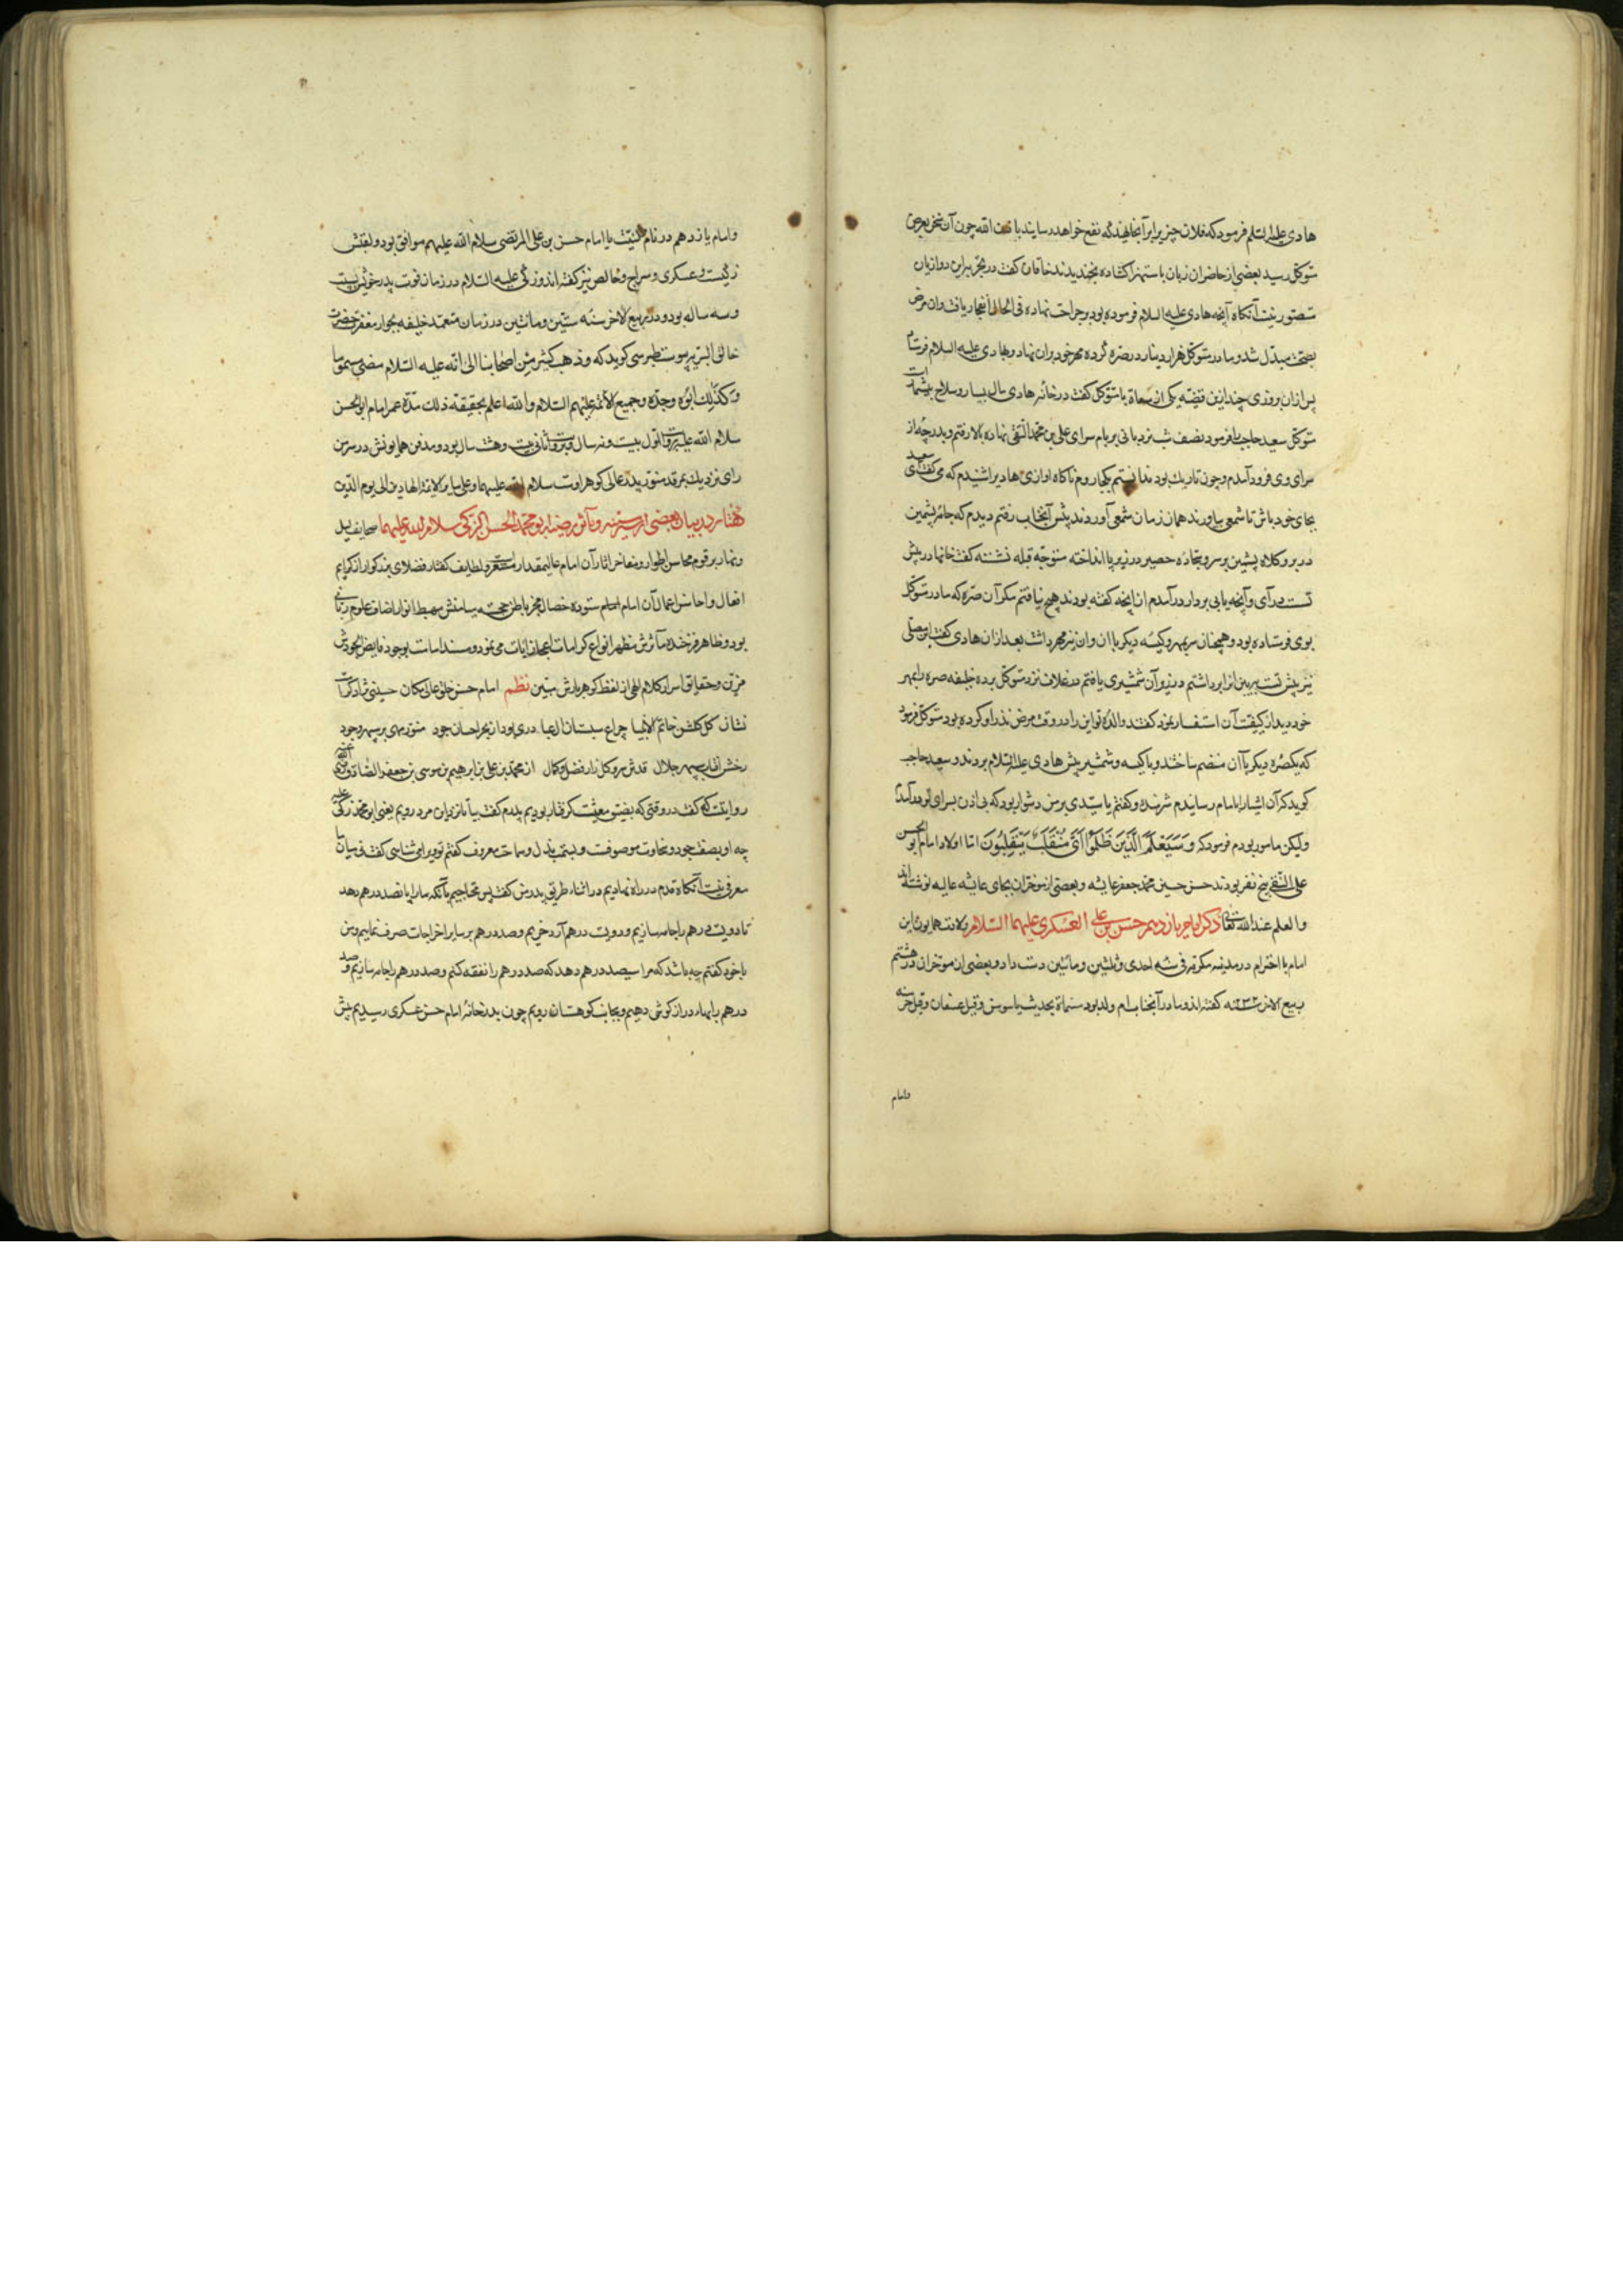 هادی علیه السلم فرمود که فلان چیز بر ایر آنجا نهند که نفع خواهد رسانید باذن الله چون آن سخن بعرض
متوکل رسید بعضی از حاضران زبان باستهزا کشاده بخندیدند خاقان کفت در تجربه این دوا زیان
متصور نیست آنکاه آنچه هادی علیه السلام فرموده بود بر جراحت نهاده فی الحال انفجار یافت و ان مرض
بصحت مبدل شد و مادر متوکل هزار دینار در صره کرده مهر خود بران نهاد و بهادی علیه السلام فرستاد
پس ازان بروزی چند ازین قضیه یکی از سعاة با متوکل کفت در خانه هادی مال بسیار و سلاح بیشمار است
متوکل سعید حاجب را فرمود نصف شب نردبانی بر بام سرای علی بن محمد التقی نهاده بالا رفتم و بدرجه از
سرای وی فرود آمدم و چون تاریک بود ندانستم بکجا روم ناکاه آواز هادی را شنیدم که می کفت ای سعید
بجای خود باش تا شمعی بیاورند همان زمان شمعی آوردند پیش آنجناب رفتم دیدم که جامه پشمین
در بر و کلاه پشمین بر سر و سجاده حصیر در زیر پا انداخته متوجه قبله نشسته کفت خانها در پیش
تست درآی و آنچه یابی بردار درآمدم از آنچه کفته بودند هیچ نیافتم مکر آن صره که مادر متوکل
بوی فرستاده بود و همچنان سربمهر و کیسه دیکر با ان و ان نیز مهر داشت بعد ازان هادی کفت این مصلی
نیز پیش تست ببین انرا برداشتم در زیر آن شمشیری یافتم در غلاف نزد متوکل برده خلیفه صره را بمهر
خود دید از کیفیت آن استفسار نمود کفتند والده تو این را در وقت مرض نذر او کرده بود متوکل فرمود
که یکصره دیکر با آن منضم ساختند و با کیسه و شمشیر پیش هادی علیه السلام بردند و سعید حاجب
کوید که آن اشیا را بامام رسانیدم شرمنده و کفتم یا سیدی بر من دشوار بود که بی اذن بسرای تو درآمدم
ولیکن مامور بودم فرمود که و سیعلم الذین ظلموا ای منقلب ینقلبون اما اولاد امام ابو الحسن
علی النقی پنج نفر بودند حسن حسین محمد جعفر عایشه و بعضی از مورخان بجای عایشه عالیه نوشته اند
والعلم عند الله تعالی ذکر امام یازدهم حسن بن علی العسکری علیهما السلام ولادت همایون این
امام با احترام در مدینه مکرمه فی سنه احدی و ثلثین و مائتین دست داد و بعضی از مورخان در هشتم
ربیع الاخر سنه ۲۳۲ کفته اند و مادر آنجناب ام ولد بود مسماة بحدیث یا سوسن و قیل عسفان و قیل
وامام
وامام یازدهم در نام و کنیت با امام حسن بن علی المرتضی سلام الله علیهم موافق بود و لقبش
زکیست و عسکری و سراج و خالص نیز کفته اند و زکی علیه السلام در زمان فوت پدر خویش بیست
و سه ساله بود و در ربیع الاخر سنه ستین و مائتین در زمان معتمد خلیفه بجوار مغفرت حضرت
خالق البریه پیوست طبرسی کوید که و ذهب کثیر من اصحابنا الی انه علیه السلام مضی مسموما
و کذلک ابوه وجده وجمیع الائمه علیهم السلام والله اعلم بحقیقة ذلک مدة عمر امام ابو الحسن
سلام الله علیه بروایت اول بیست و نه سال و بروایت ثانی بیست و هشت سال بود و مدفن همایونش در سر من
رای نزدیک بمرقد منور پدر عالی کوهر اوست سلام الله علیهما و علی سایر الائمة الهادین الی یوم الدین
کفتار در بیان بعضی از سیر سنیه و مآثر رضیه ابو محمد الحسن الزکی سلام الله علیهما صحایف لیل
و نهار برقوم محاسن اطوار و مفاخر اثار آن امام عالیمقدار و لطایف کفتار فضلای بزرکوار از کرایم
افعال و احاسن اعمال آن امام ستوده خصال مخبر باطن خجسته میامنش مهبط انوار اضاف علوم ربانی
بود و ظاهر فرخنده مآثرش مظهر انواع کرامات و اعجاز ایات می نمود و مسند امامت بوجود فایض الجودش
مزین و حقایق اسرار کلام الهی از لفظ کوهربارش مبین نظم امام حسن خلق عالی مکان حسینی نژاد کرامت
نشان کل کلشن خاتم الانبیا چراغ شبستان ال عبا دری بود از بحر احسان جود منور مهی بر سپهر وجود
رخش آفتاب سپهر جلال قدش سرو کلزار فضل و کمال از محمد بن علی بن ابرهیم بن موسی بن جعفر الصادق رضی الله عنهم
روایتست که کفت در وقتی که بضیق معیشت کرفتار بودیم پدرم کفت بیا تا نزد این مرد رویم یعنی ابو محمد زکی علیه
چه او بصفت جود و سخاوت موصوفست و بسمت بذل و سماحت معروف کفتم تو ویرا می شناسی کفت فی میان ما
معرفی نیست آنکاه قدم در راه نهادیم در اثناء طریق پدر من کفت پس محتاجیم بآنکه ما را پانصد درهم دهد
تا دویست درهم را جامه سازیم و دویست درهم آرد خریم و صد درهم بر سایر اخراجات صرف نماییم و من
با خود کفتم چه باشد که مرا سیصد درهم دهد که صد درهم را نفقه کنم و صد درهم را جامه سازیم و صد
درهم بابهاء درازکوش دهیم و بجانب کوهستان رویم چون بدرخانه امام حسن عسکری رسیدیم پیش